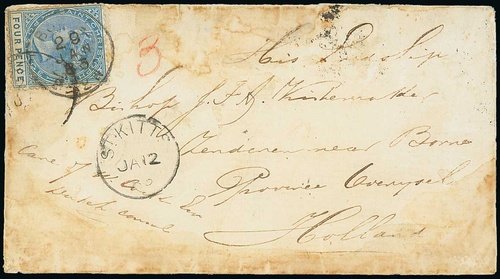 FOUR PENCE
20
3
His Lordship
Bishop J. F. A. Kistemaker
Zenderen near Borne
Province Overysel
Holland
ST. KITTS
JA 12
Care of
Dutch consul